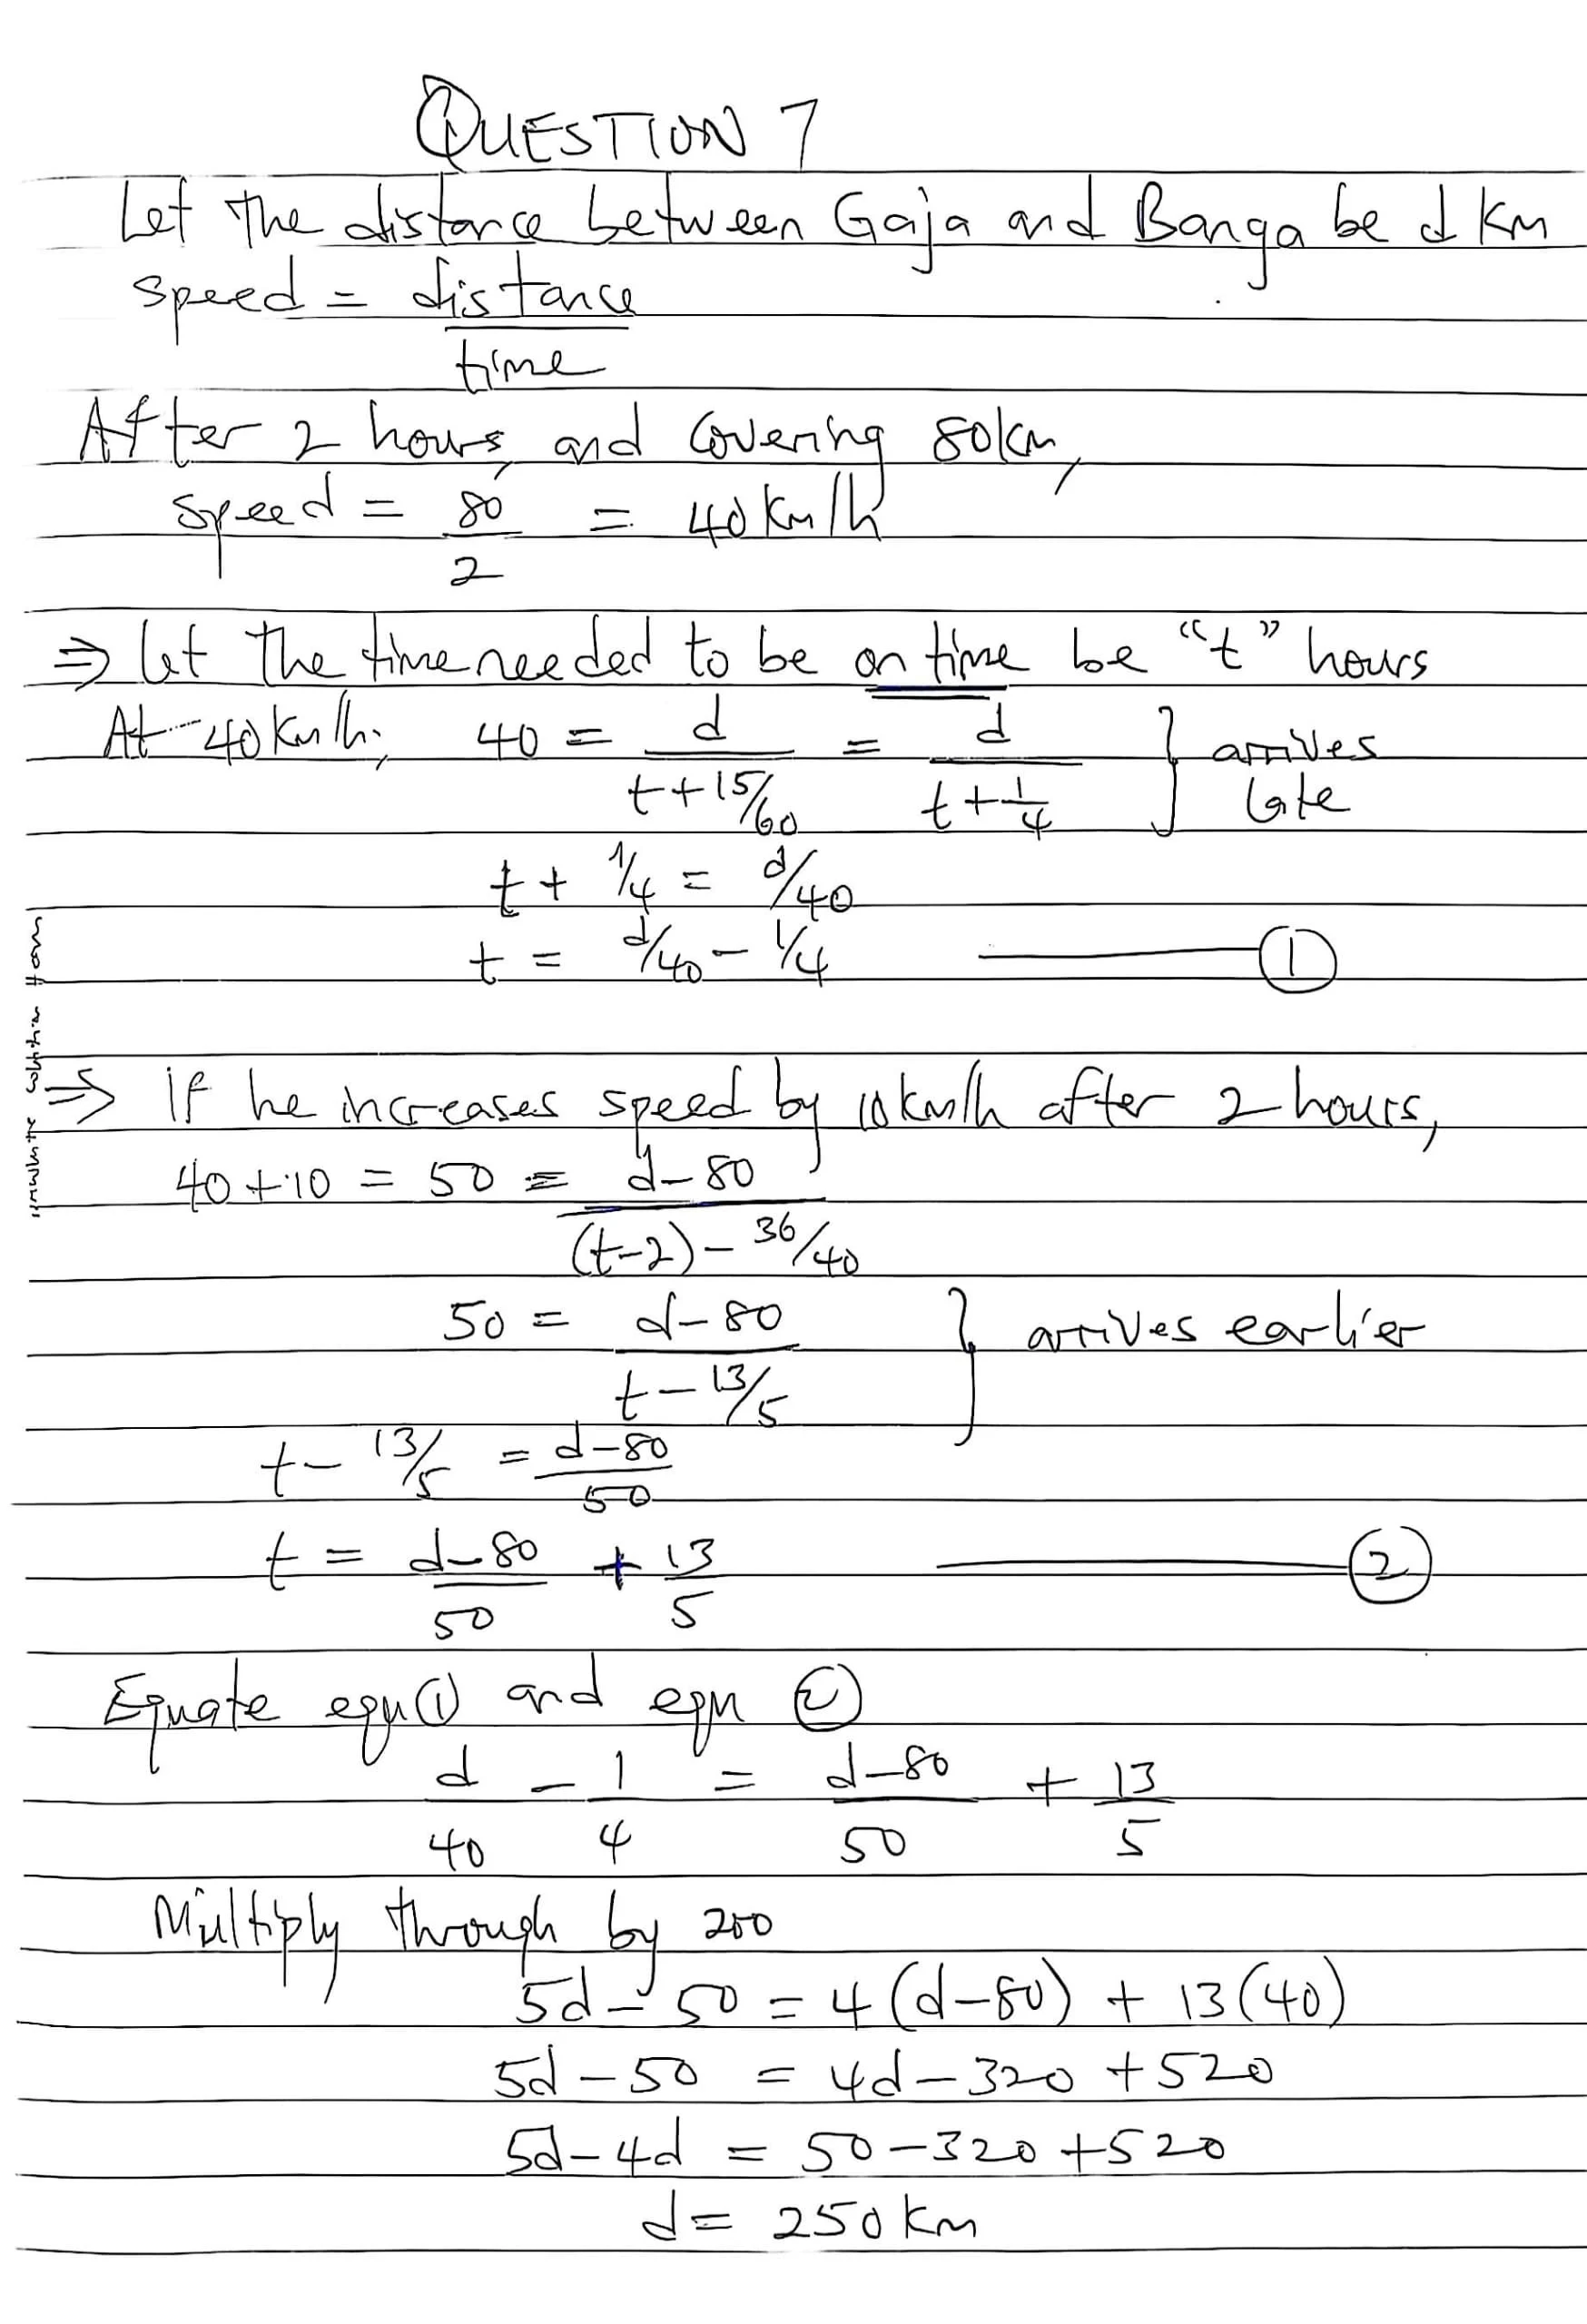 QUESTION 7
Let the distance between Gaja and Banga be d km
speed = distance/time
After 2 hours, and covering 80km,
speed = 80/2 = 40km/h
⇒ let the time needed to be on time be "t" hours
At 40km/h, 40 = d/(t+15/60) = d/(t+1/4) } arrives late
t + 1/4 = d/40
t = d/40 - 1/4 ——— ①
⇒ if he increases speed by 10km/h after 2 hours,
40+10 = 50 = (d-80)/((t-2) - 36/40)
50 = (d-80)/(t-13/5) } arrives earlier
t - 13/5 = (d-80)/50
t = (d-80)/50 + 13/5 ——— ②
Equate equ ① and eqn ②
d/40 - 1/4 = (d-80)/50 + 13/5
Multiply through by 200
5d - 50 = 4(d-80) + 13(40)
5d - 50 = 4d - 320 + 520
5d - 4d = 50 - 320 + 520
d = 250km